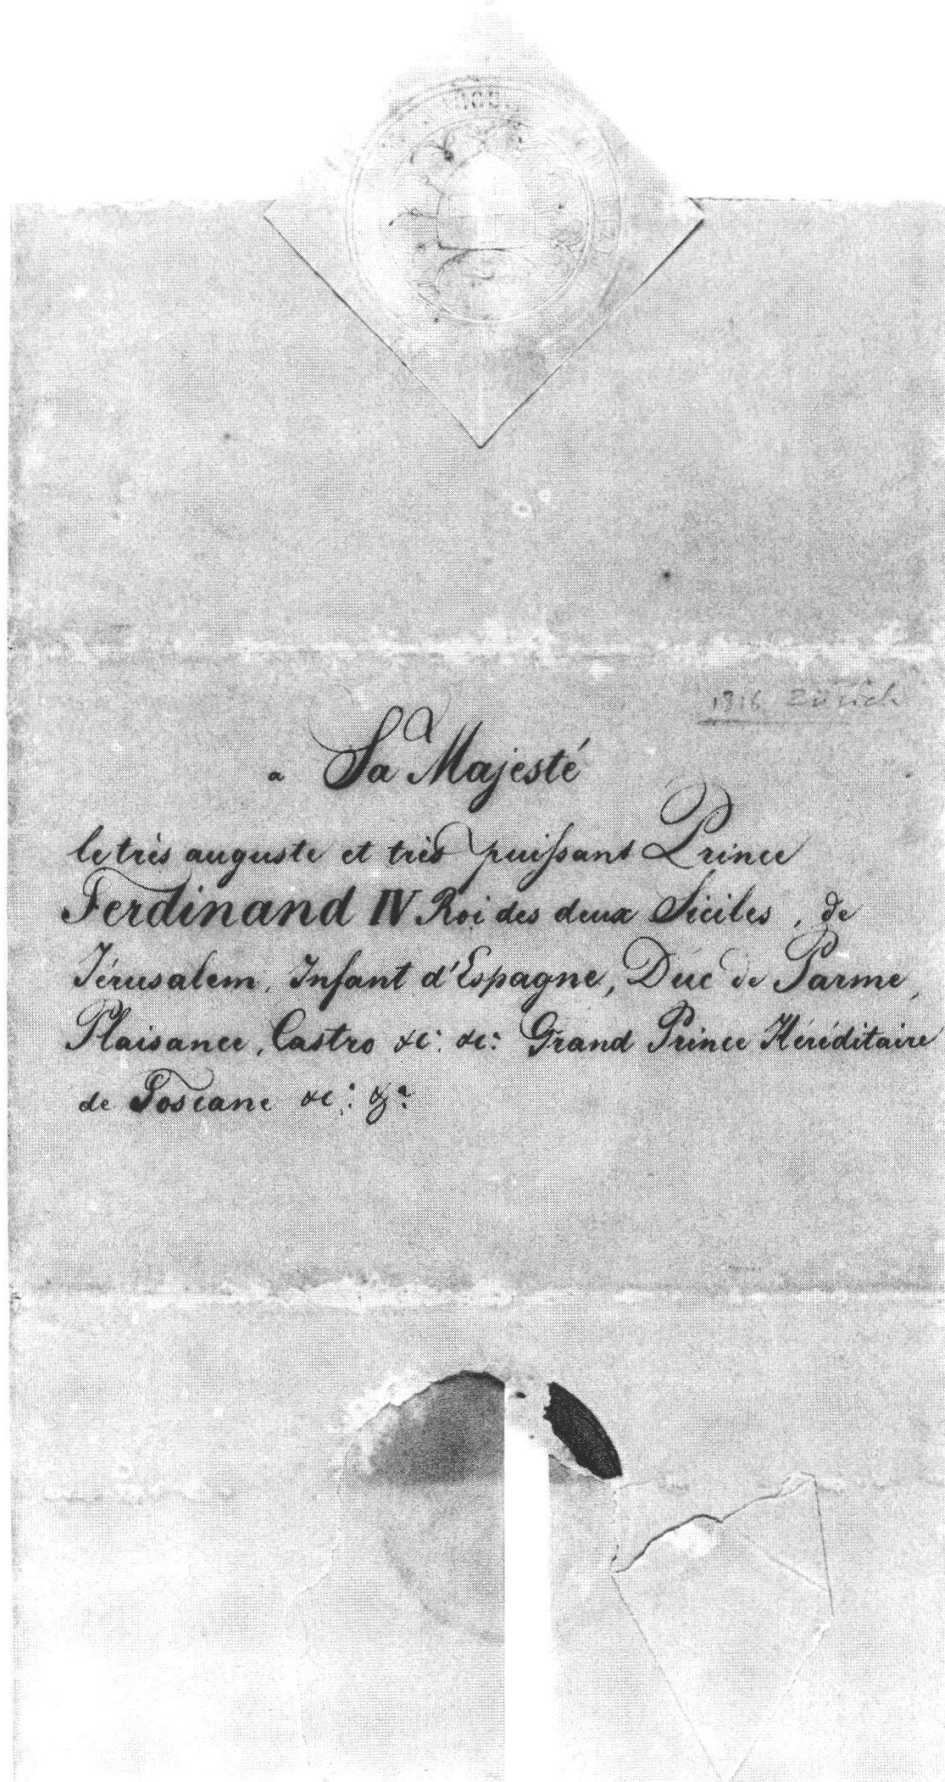 1816 Zürich
a Sa Majesté
le très auguste et très puiſsant Prince
Ferdinand IV Roi des deux Siciles, de
Jérusalem, Infant d'Espagne, Duc de Parme,
Plaisance, Castro &c: &c: Grand Prince Héréditaire
de Toscane &c: &c: